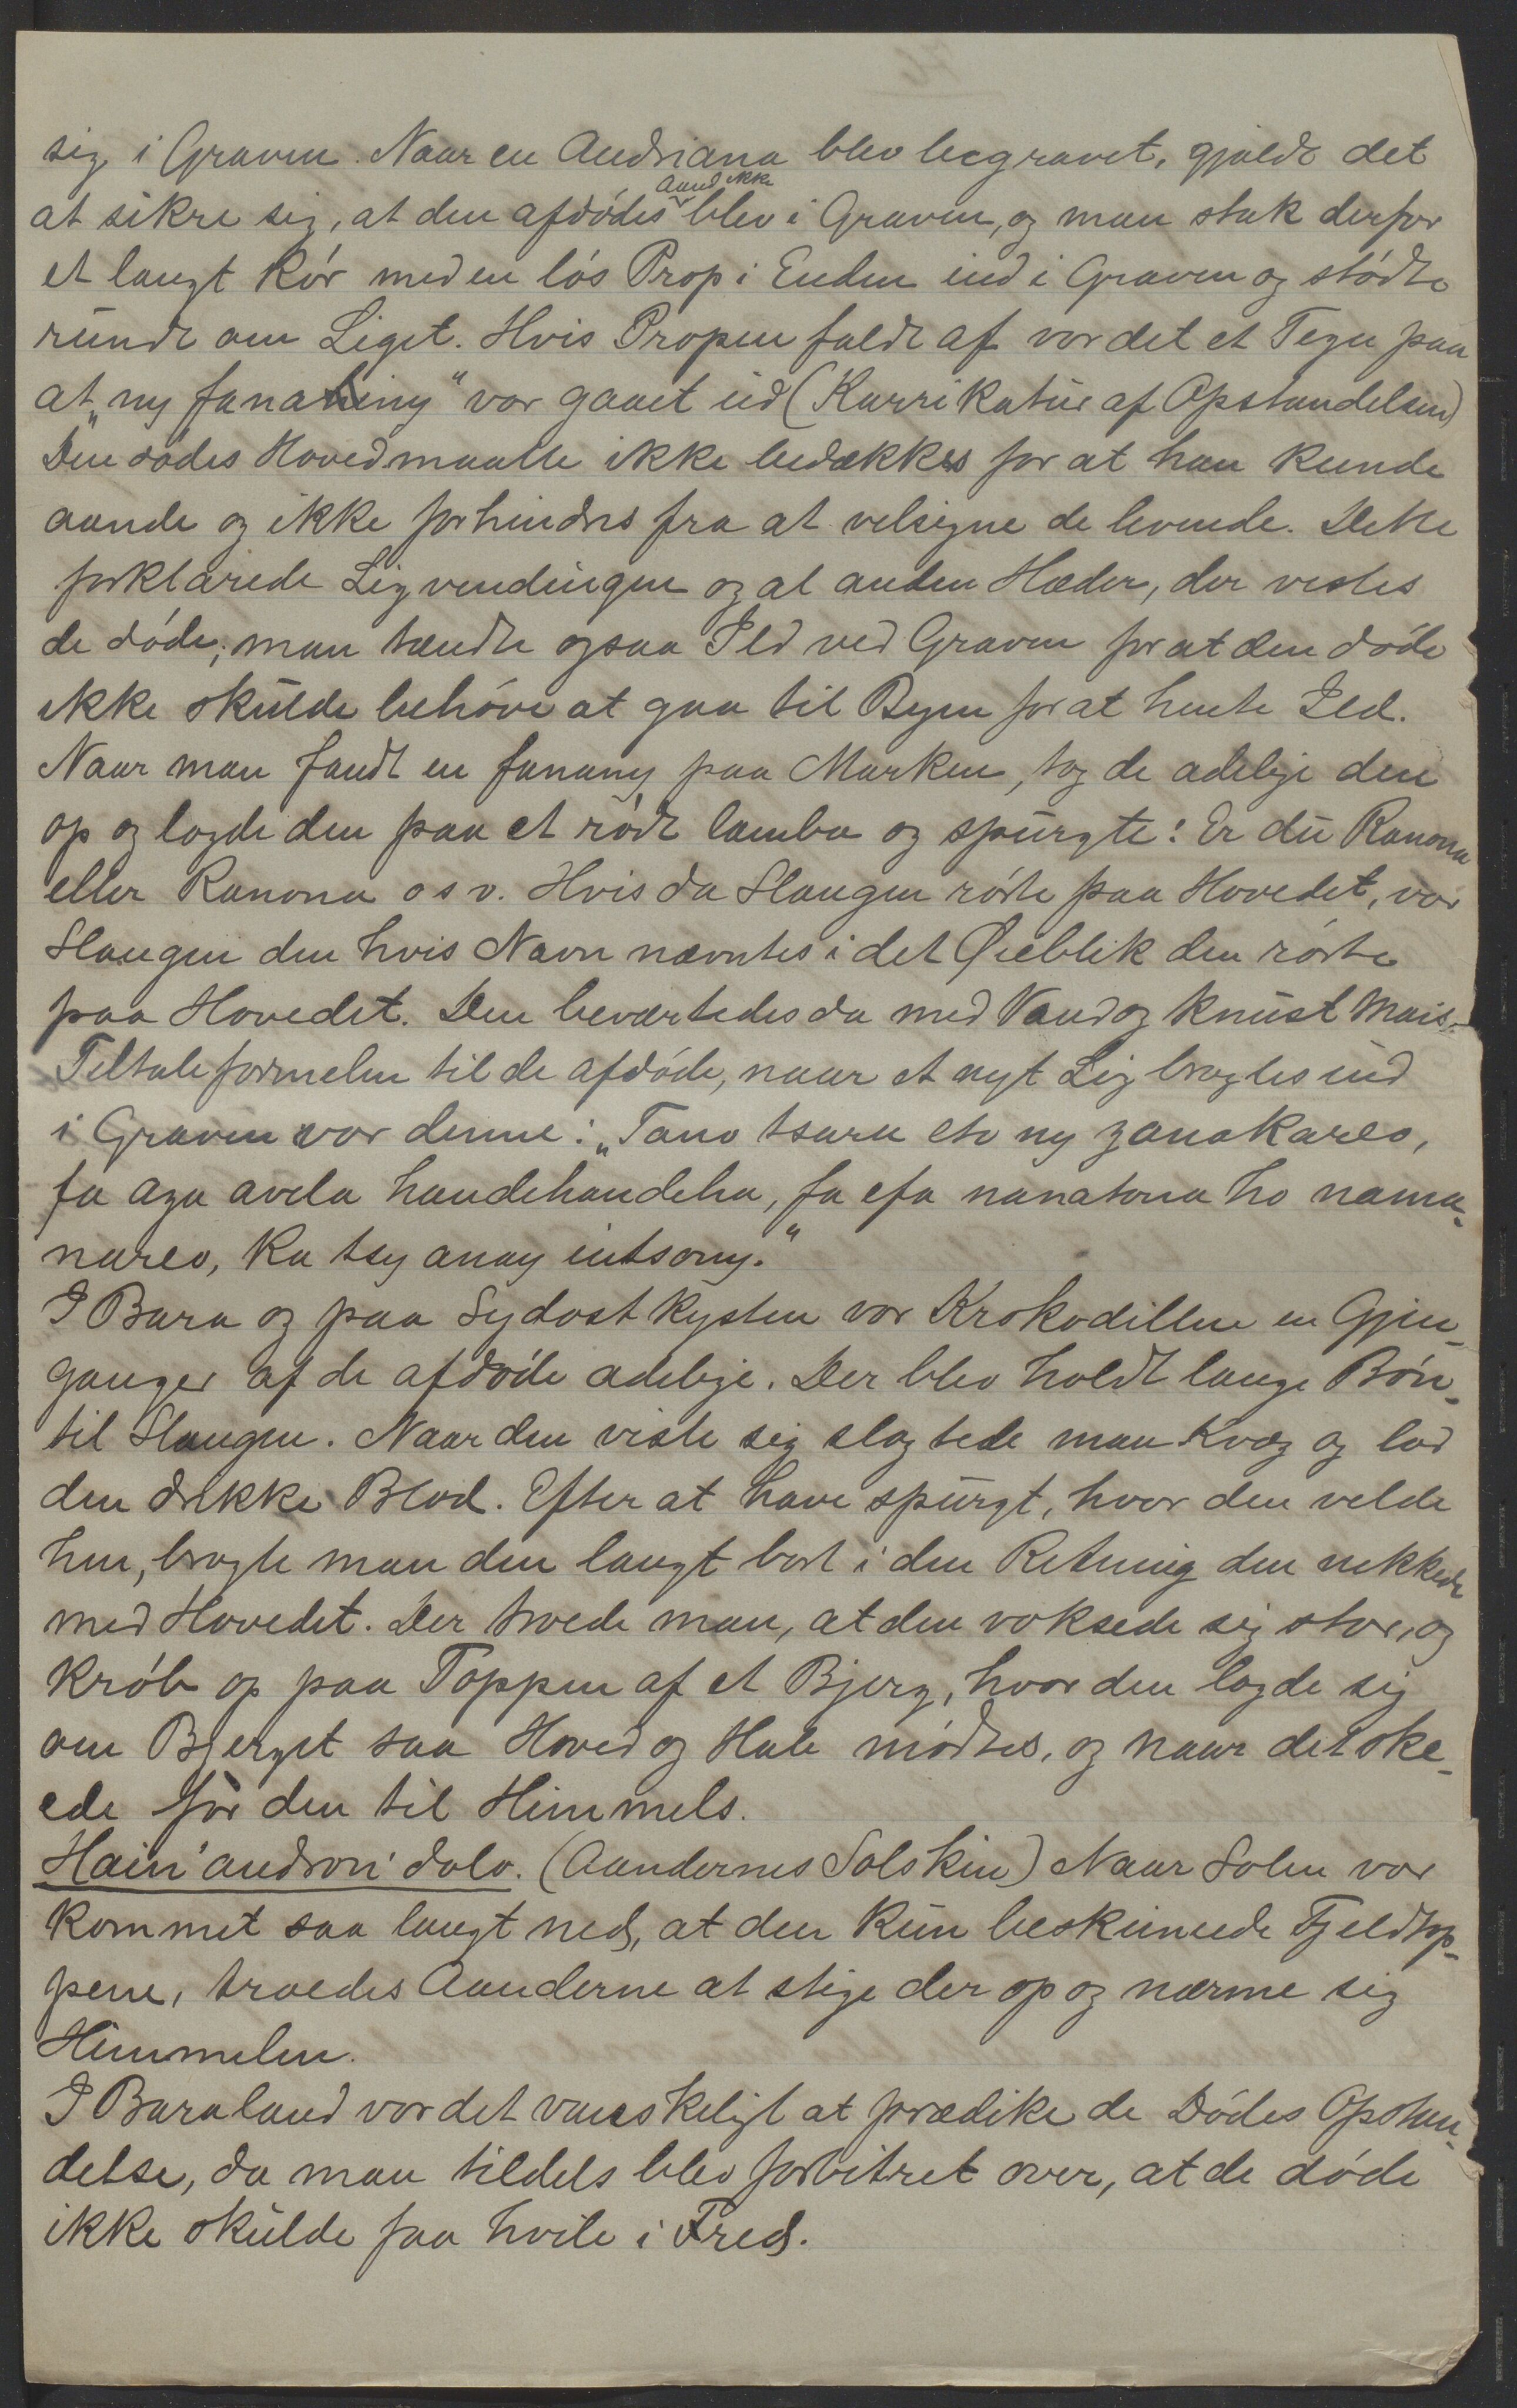 sig i Graven. Naar en Andriana blev begravet, gjaldt det
at sikre sig, at den afdödes Aand ikke blev i Graven, og man stak derfor
et langt Rör med en lös Prop i Enden ind i Graven og stödte
rundt om Liget. Hvis Propen faldt af var det et Tegn paa
at „ny fananiny“ var gaaet ud (Karrikatur af Opstandelsen)
Den dödes Hoved maatte ikke bedækkes for at han kunde
aande og ikke forhindres fra at velsigne de levende. Dette
forklarede Ligvendingen og al anden Hæder, der vistes
de döde; man tændte ogsaa Ild ved Graven for at den döde
ikke skulde behöve at gaa til Byen for at hente Ild.
Naar man fandt en fanany paa Marken, tog de adelige den
op og lagde den paa et rödt lamba og spurgte: Er du Ranona
eller Ranona o s v. Hvis da Slangen rörte paa Hovedet, var
Slangen den hvis Navn nævntes i det Øieblik den rörte
paa Hovedet. Den beværtedes da med Vand og knust Mais.
Tiltaleformelen til de afdöde, naar et nyt Lig bragtes ind
i Graven var denne: „Tano tsara eto ny zanakareo,
fa aza avela handehandeha, fa efa nanatona ho nama-
nareo, ka tsy anay intsony.“
I Bara og paa Sydostkysten var Krokodillen en Gjen-
ganger af de afdöde adelige. Der blev holdt lange Bön-
til Slangen. Naar den viste sig slagtede man Kvæg og lod
den drikke Blod. Efter at have spurgt, hvor den vilde
hen, bragte man den langt bort i den Retning den nikkede
med Hovedet. Der troede man, at den voksede sig stor, og
kröb op paa Toppen af et Bjerg, hvor den lagde sig
om Bjerget saa Hoved og Hale mödtes, og naar det ske-
ede för den til Himmels.
Hain'andron'dolo. (Aandernes Solskin) Naar Solen var
kommet saa langt ned, at den kun beskinnede Fjeldtop-
pene, troedes Aanderne at stige der op og nærme sig
Himmelen.
I Baraland var det vanskeligt at prædike de Dödes Opstan-
delse, da man tildels blev forbitret over, at de döde
ikke skulde faa hvile i Fred.